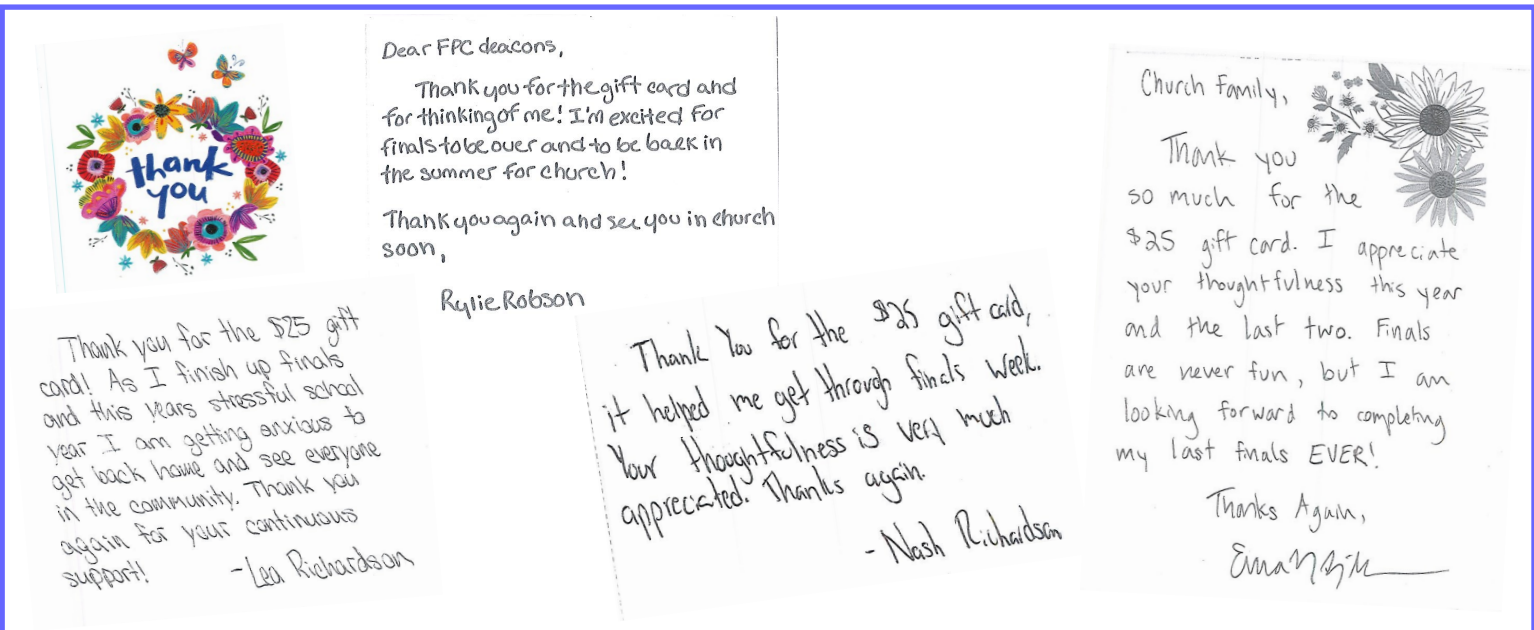 thank
you
Dear FPC deacons,
Thank you for the gift card and
for thinking of me! I'm excited for
finals to be over and to be back in
the summer for church!
Thank you again and see you in church
soon,
Rylie Robson
Thank you for the $25 gift
card! As I finish up finals
and this years stressful school
year I am getting anxious to
get back home and see everyone
in the community. Thank you
again for your continuous
support!
-Lea Richardson
Thank You for the $25 gift card,
it helped me get through finals week.
Your thoughtfulness is very much
appreciated. Thanks again.
- Nash Richardson
Church Family,
Thank you
so much for the
$25 gift card. I appreciate
your thoughtfulness this year
and the last two. Finals
are never fun, but I am
looking forward to completing
my last finals EVER!
Thanks Again,